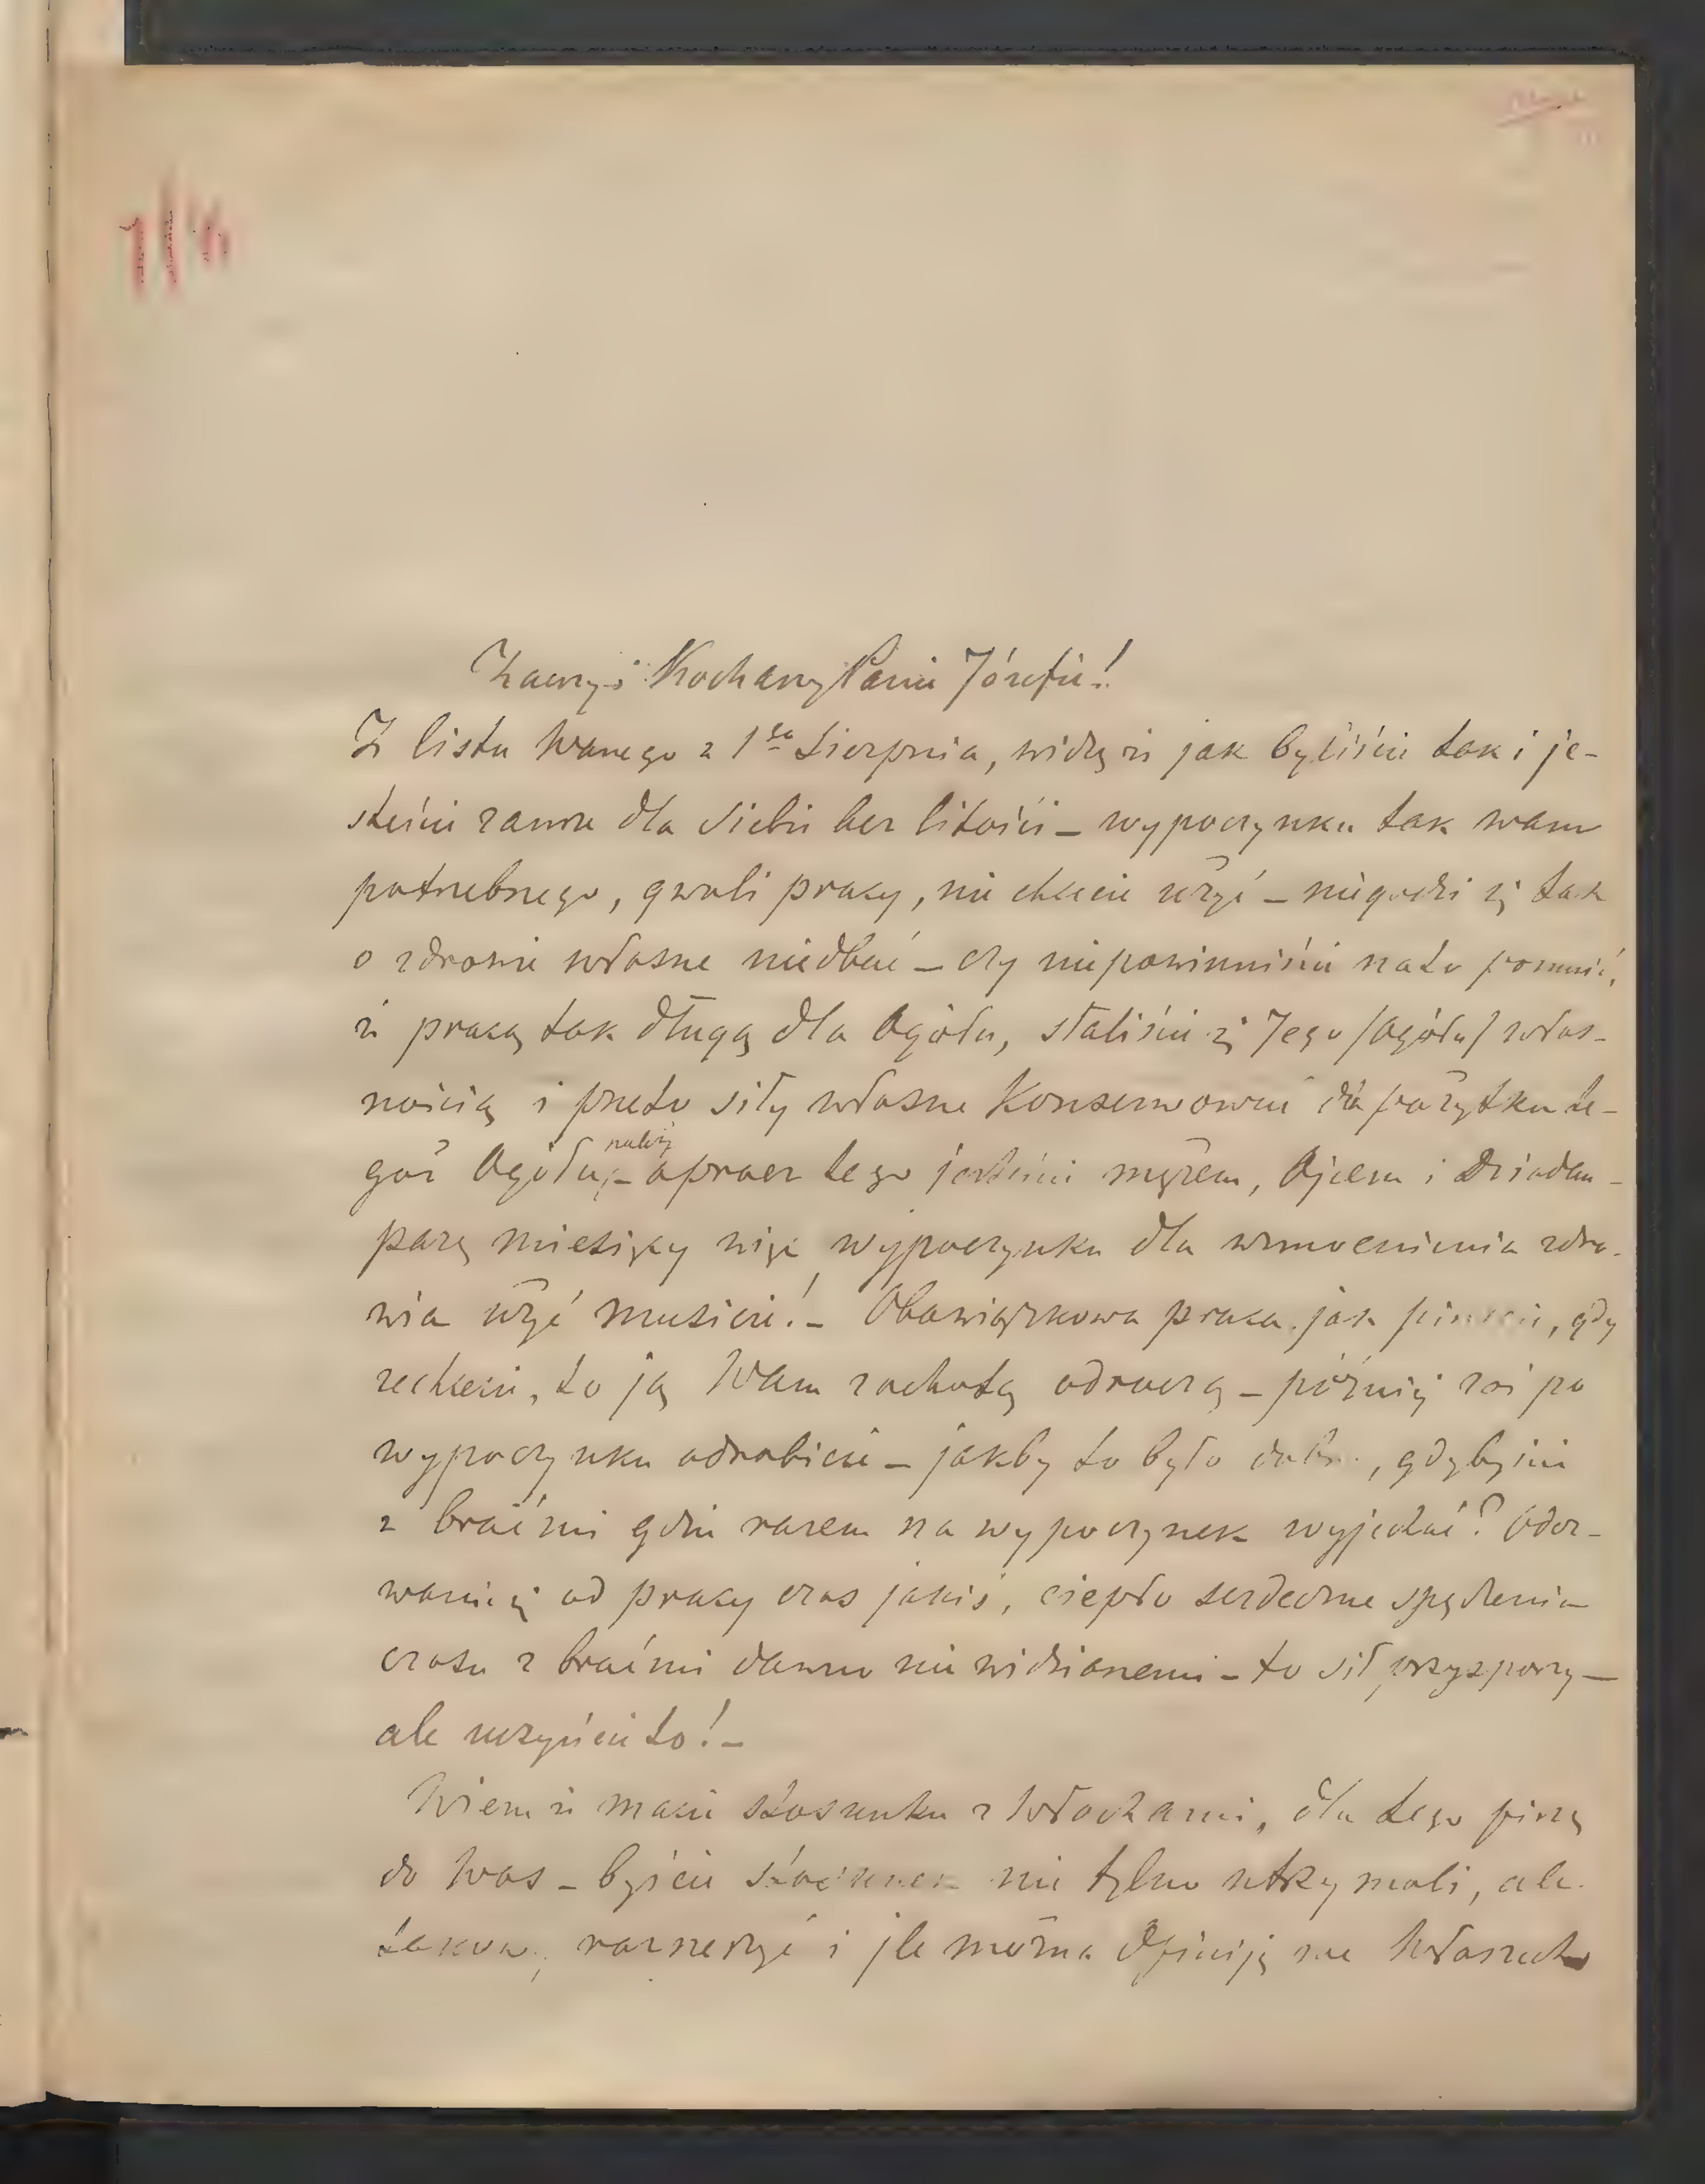 Zacny i Kochany Panie Józefie!
Z listu Waszego z 1go Sierpnia, widzę iż jak byliście tak i je-
steście zawsze dla siebie bez litości – wypoczynku tak wam
potrzebnego, gwoli pracy, nie chcecie użyć – niegodzi się tak
o zdrowie własne niedbać – czy niepowinniście na to pomnieć,
iż pracą tak długą dla Ogółu, staliście się Jego /Ogółu/ włas-
nością i przeto siły własne Konserwować dla pożytku te-
goż Ogółu, należy – oprócz tego jesteście mężem, Ojcem i Dziadem –
parę miesięcy więc wypoczynku dla wzmocnienia zdro-
wia użyć musicie! – Obowiązkowa praca jak piszecie, gdy
zechcecie, to ją Wam z ochotą odroczą – później zaś po
wypoczynku odrobicie – jakby to było dobrze, gdybyście
z braćmi gdzie razem na wypoczynek wyjechać? Oder-
wanie się od pracy czas jakiś, ciepło serdeczne spędzenia
czasu z braćmi dawno nie widzianemi – to sił przysporzy –
ale uczyńcie to! –
Wiem iż macie stosunku z Włochami, dla tego piszę
do Was – byście stosunek nie tylko utrzymali, ale
takowy rozszerzyć i jle można Opiniję we Włoszech